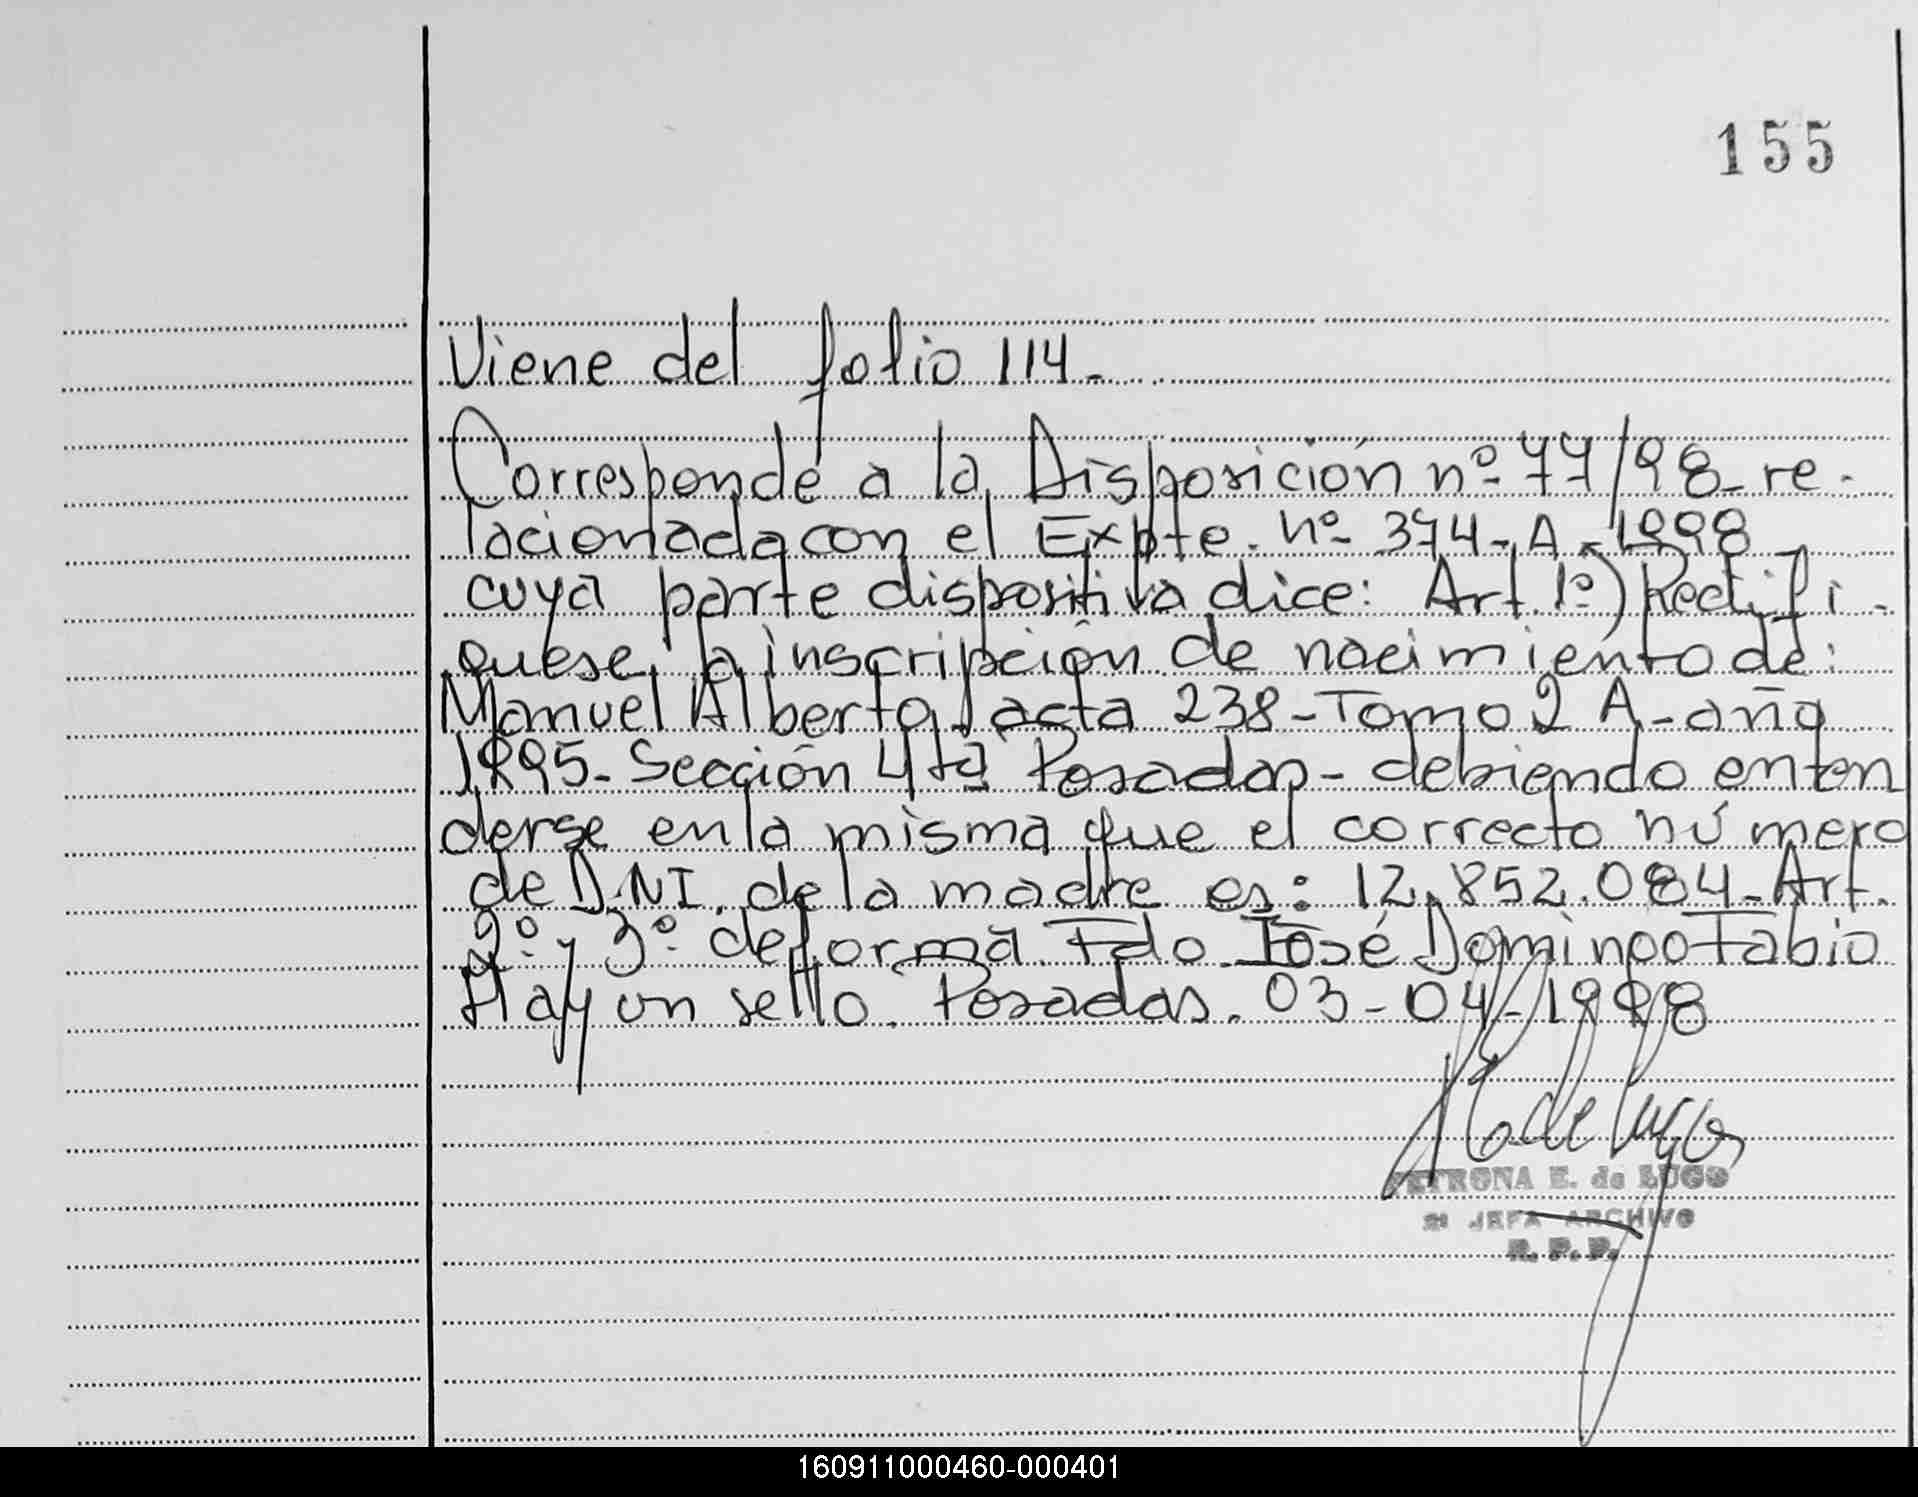 155
Viene del folio 114.-
Corresponde a la Disposición nº 77/98 re-
lacionada con el Expte. nº 374-A-1998
cuya parte dispositiva dice: Art. 1º) Rectifi-
quese la inscripción de nacimiento de:
Manuel Alberto, acta 238-Tomo 2 A-año
1995-Sección 4ta Posadas-debiendo enten
derse en la misma que el correcto número
de D.NI. de la madre es: 12.852.084-Art.
2º y 3º de forma. Fdo. José Domingo Fabio
Hay un sello. Posadas. 03-04-1998
de Lugo
PETRONA E. de LUGO
2ª JEFA ARCHIVO
R. P. P.
160911000460-000401